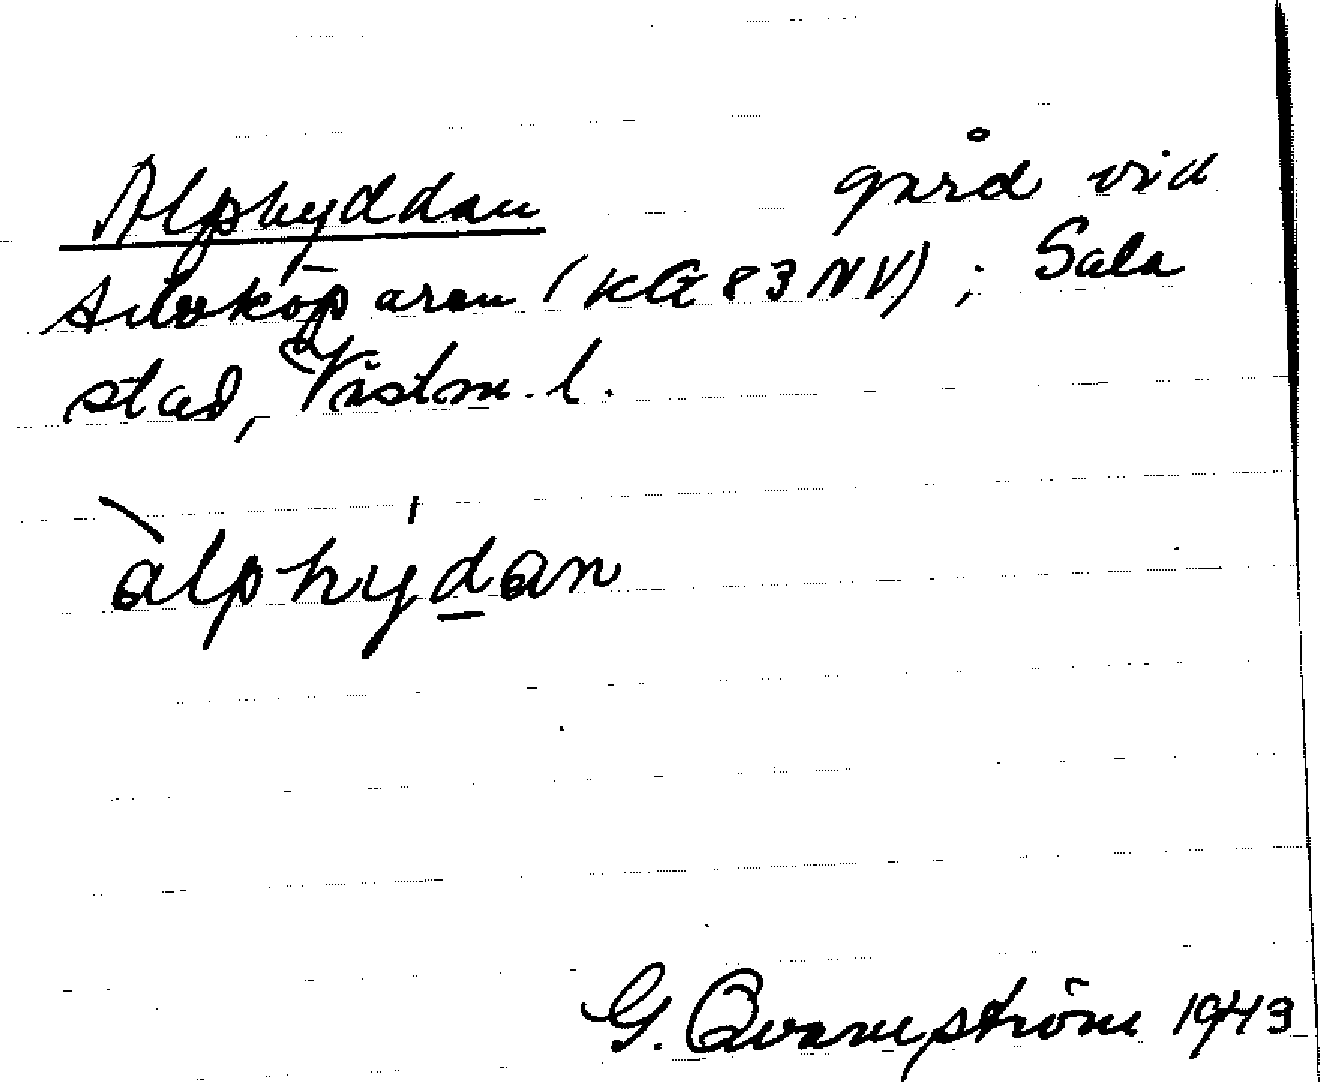 Alphyddan gård vid
Silvköparen (KG 83 NV); Sala
stad, Västm. l.
àlphýdan
G. Qvarnström 1943